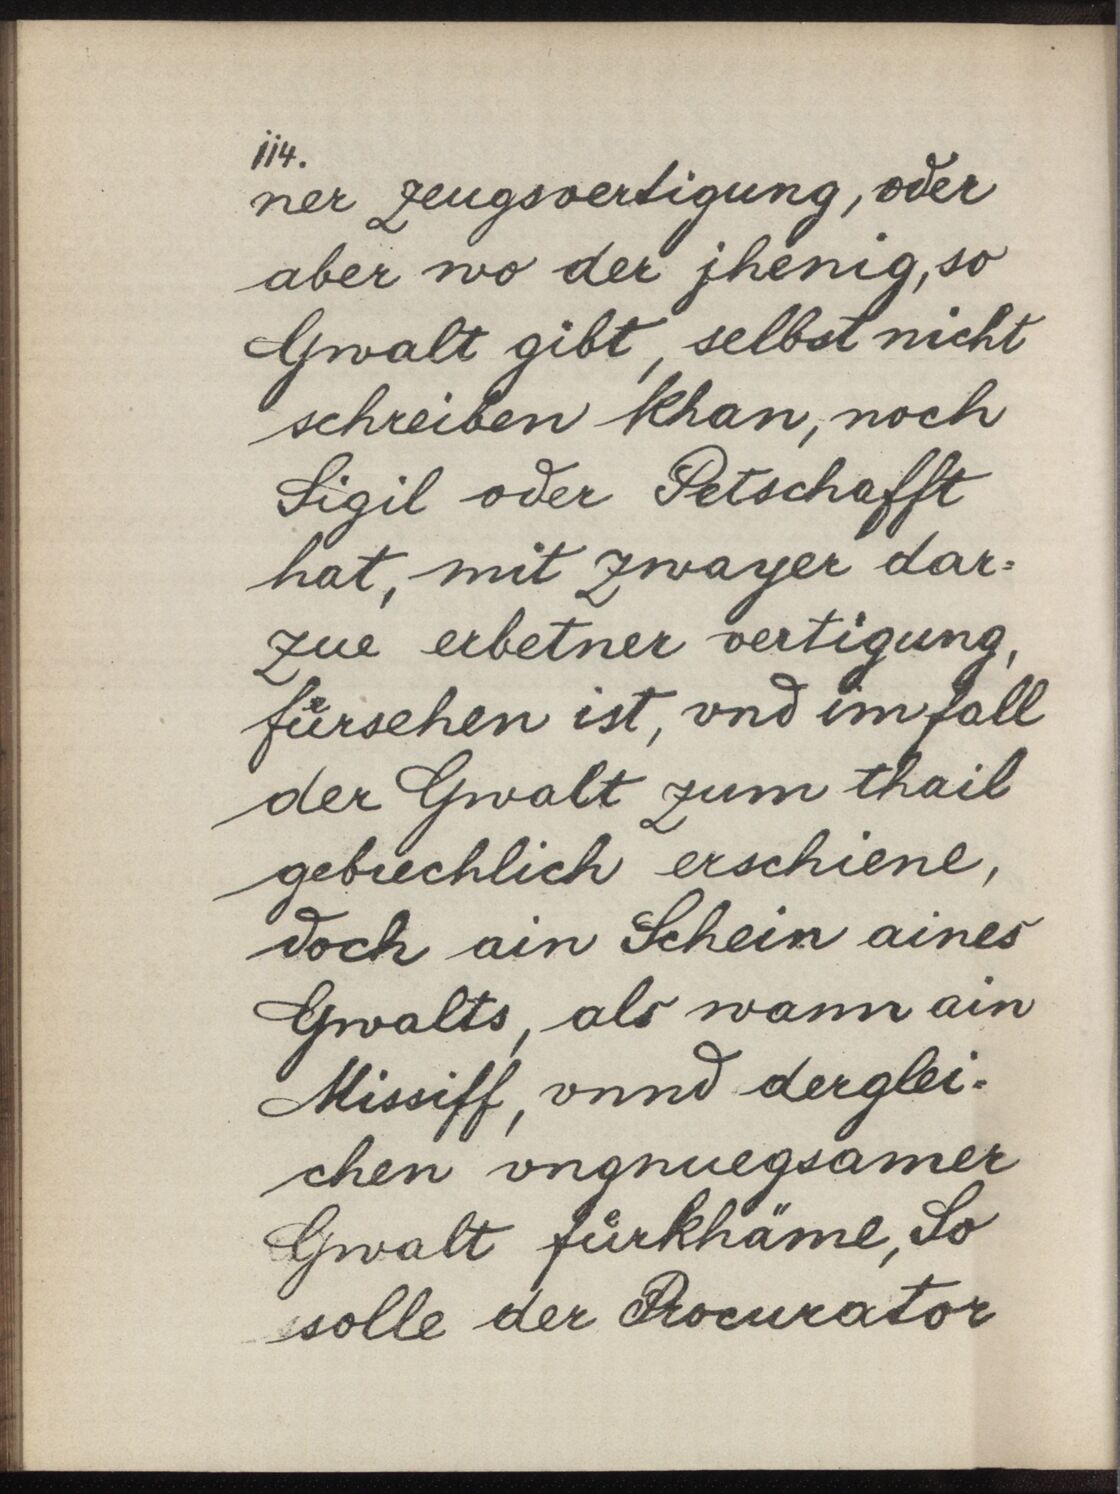 114.
ner Zeugsvertigung, oder
aber wo der jhenig, so
Gwalt gibt, selbst nicht
schreiben khan, noch
Sigil oder Petschafft
hat, mit Zwayer dar=
Zue erbetner vertigung,
fürsehen ist, vnd im fall
der Gwalt zum thail
gebrechlich erschiene,
doch ain Schein aines
Gwalts, als wann ain
Missiff, vnnd derglei=
chen vngnuegsamer
Gwalt fůrkhäme, So
solle der Procurator